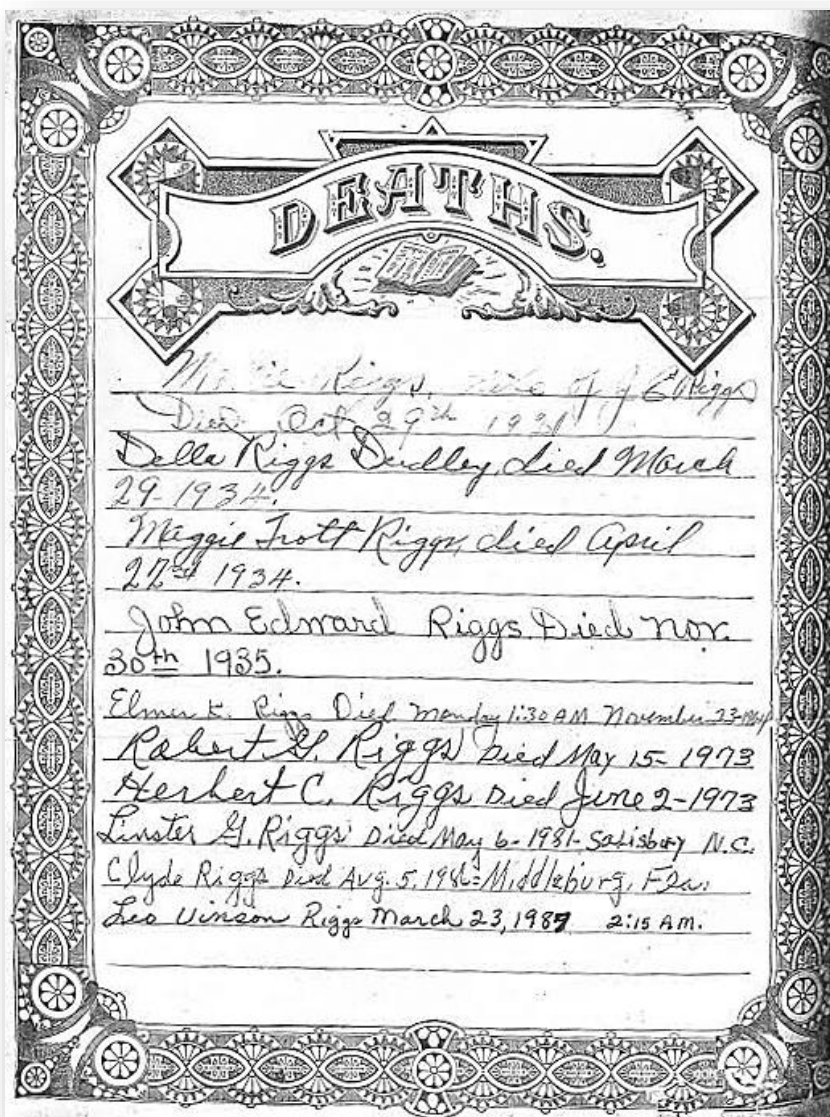 DEATHS.
Riggs, wife of J E Riggs
Died Oct 29th 1931
Della Riggs Dudley, died March
29-1934.
Maggie Trott Riggs, died April
22nd 1934.
John Edward Riggs Died Nov.
30th 1935.
Elmer K. Riggs Died Monday 1:30 AM November 23-1964
Robert G. Riggs Died May 15-1973
Herbert C. Riggs Died June 2-1973
Linster G. Riggs Died May 6-1981-Salisbury N.C.
Clyde Riggs Died Aug. 5, 1986=Middleburg, Fla.
Leo Vinson Riggs March 23, 1987 2:15 AM.